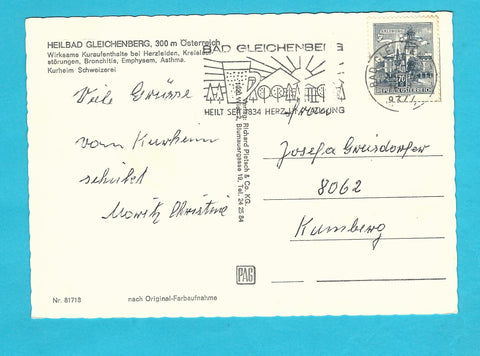 HEILBAD GLEICHENBERG, 300 m Österreich
Wirksame Kuraufenthalte bei Herzleiden, Kreislauf-
störungen, Bronchitis, Emphysem, Asthma.
Kurheim Schweizerei
BAD GLEICHENBERG
HEILT SEIT 1834 HERZ ATMUNG
REPUBLIK ÖSTERREICH
Viele Grüsse
vom Kurheim
schickt
Moritz Christine
Verlag: Richard Pietsch & Co. KG.
Wien 2, Blumauergasse 10, Tel. 24 25 84
Josefa
8062
Kumberg
PAG
Nr. 81718
nach Original-Farbaufnahme